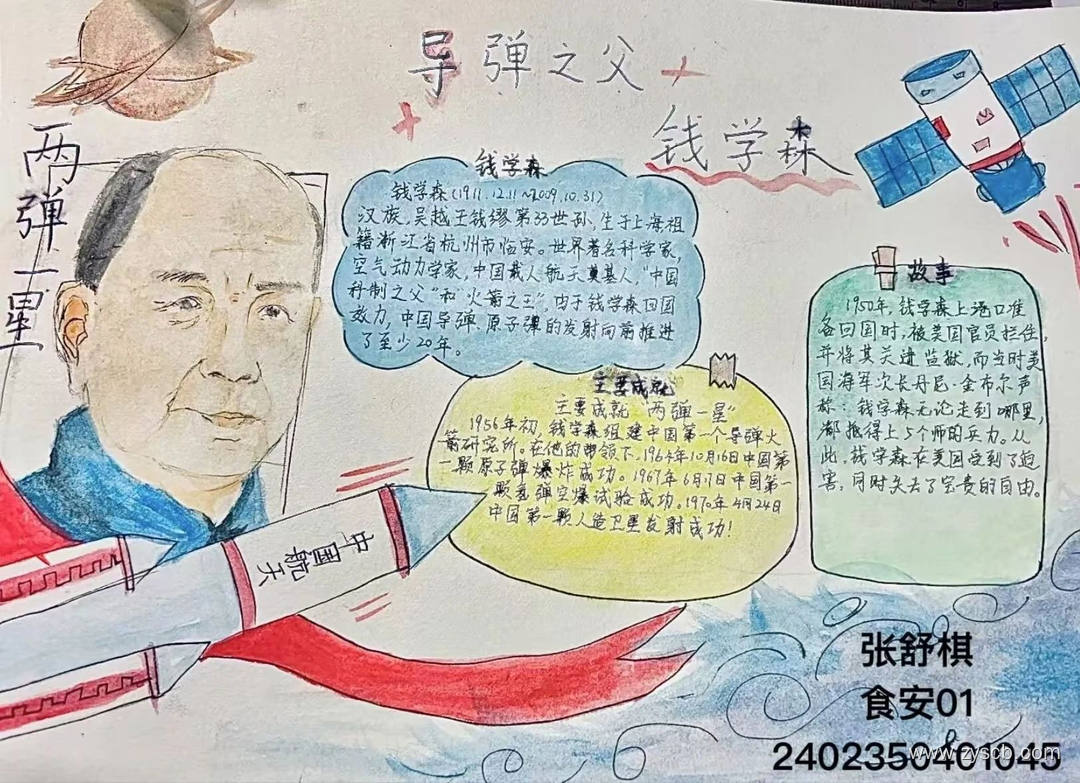 导弹之父
钱学森
两弹一星
钱学森
钱学森(1911.12.11~2009.10.31)
汉族，吴越王钱缪第33世孙，生于上海祖
籍浙江省杭州市临安。世界著名科学家，
空气动力学家，中国载人航天奠基人，“中国
科制之父”和“火箭之王”，由于钱学森回国
效力，中国导弹、原子弹的发射向前推进
了至少20年。
主要成就
主要成就 “两弹一星”
1956年初，钱学森组建中国第一个导弹火
箭研究所。在他的带领下，1964年10月16日中国第
一颗原子弹爆炸成功。1967年6月17日中国第一
颗氢弹空爆试验成功。1970年4月24日
中国第一颗人造卫星发射成功！
故事
1950年，钱学森上港口准
备回国时，被美国官员拦住，
并将其关进监狱，而当时美
国海军次长丹尼·金布尔声
称：钱学森无论走到哪里，
都抵得上5个师的兵力。从
此，钱学森在美国受到了迫
害，同时失去了宝贵的自由。
中国航天
张舒棋
食安01
2402350401045
www.zyscb.com